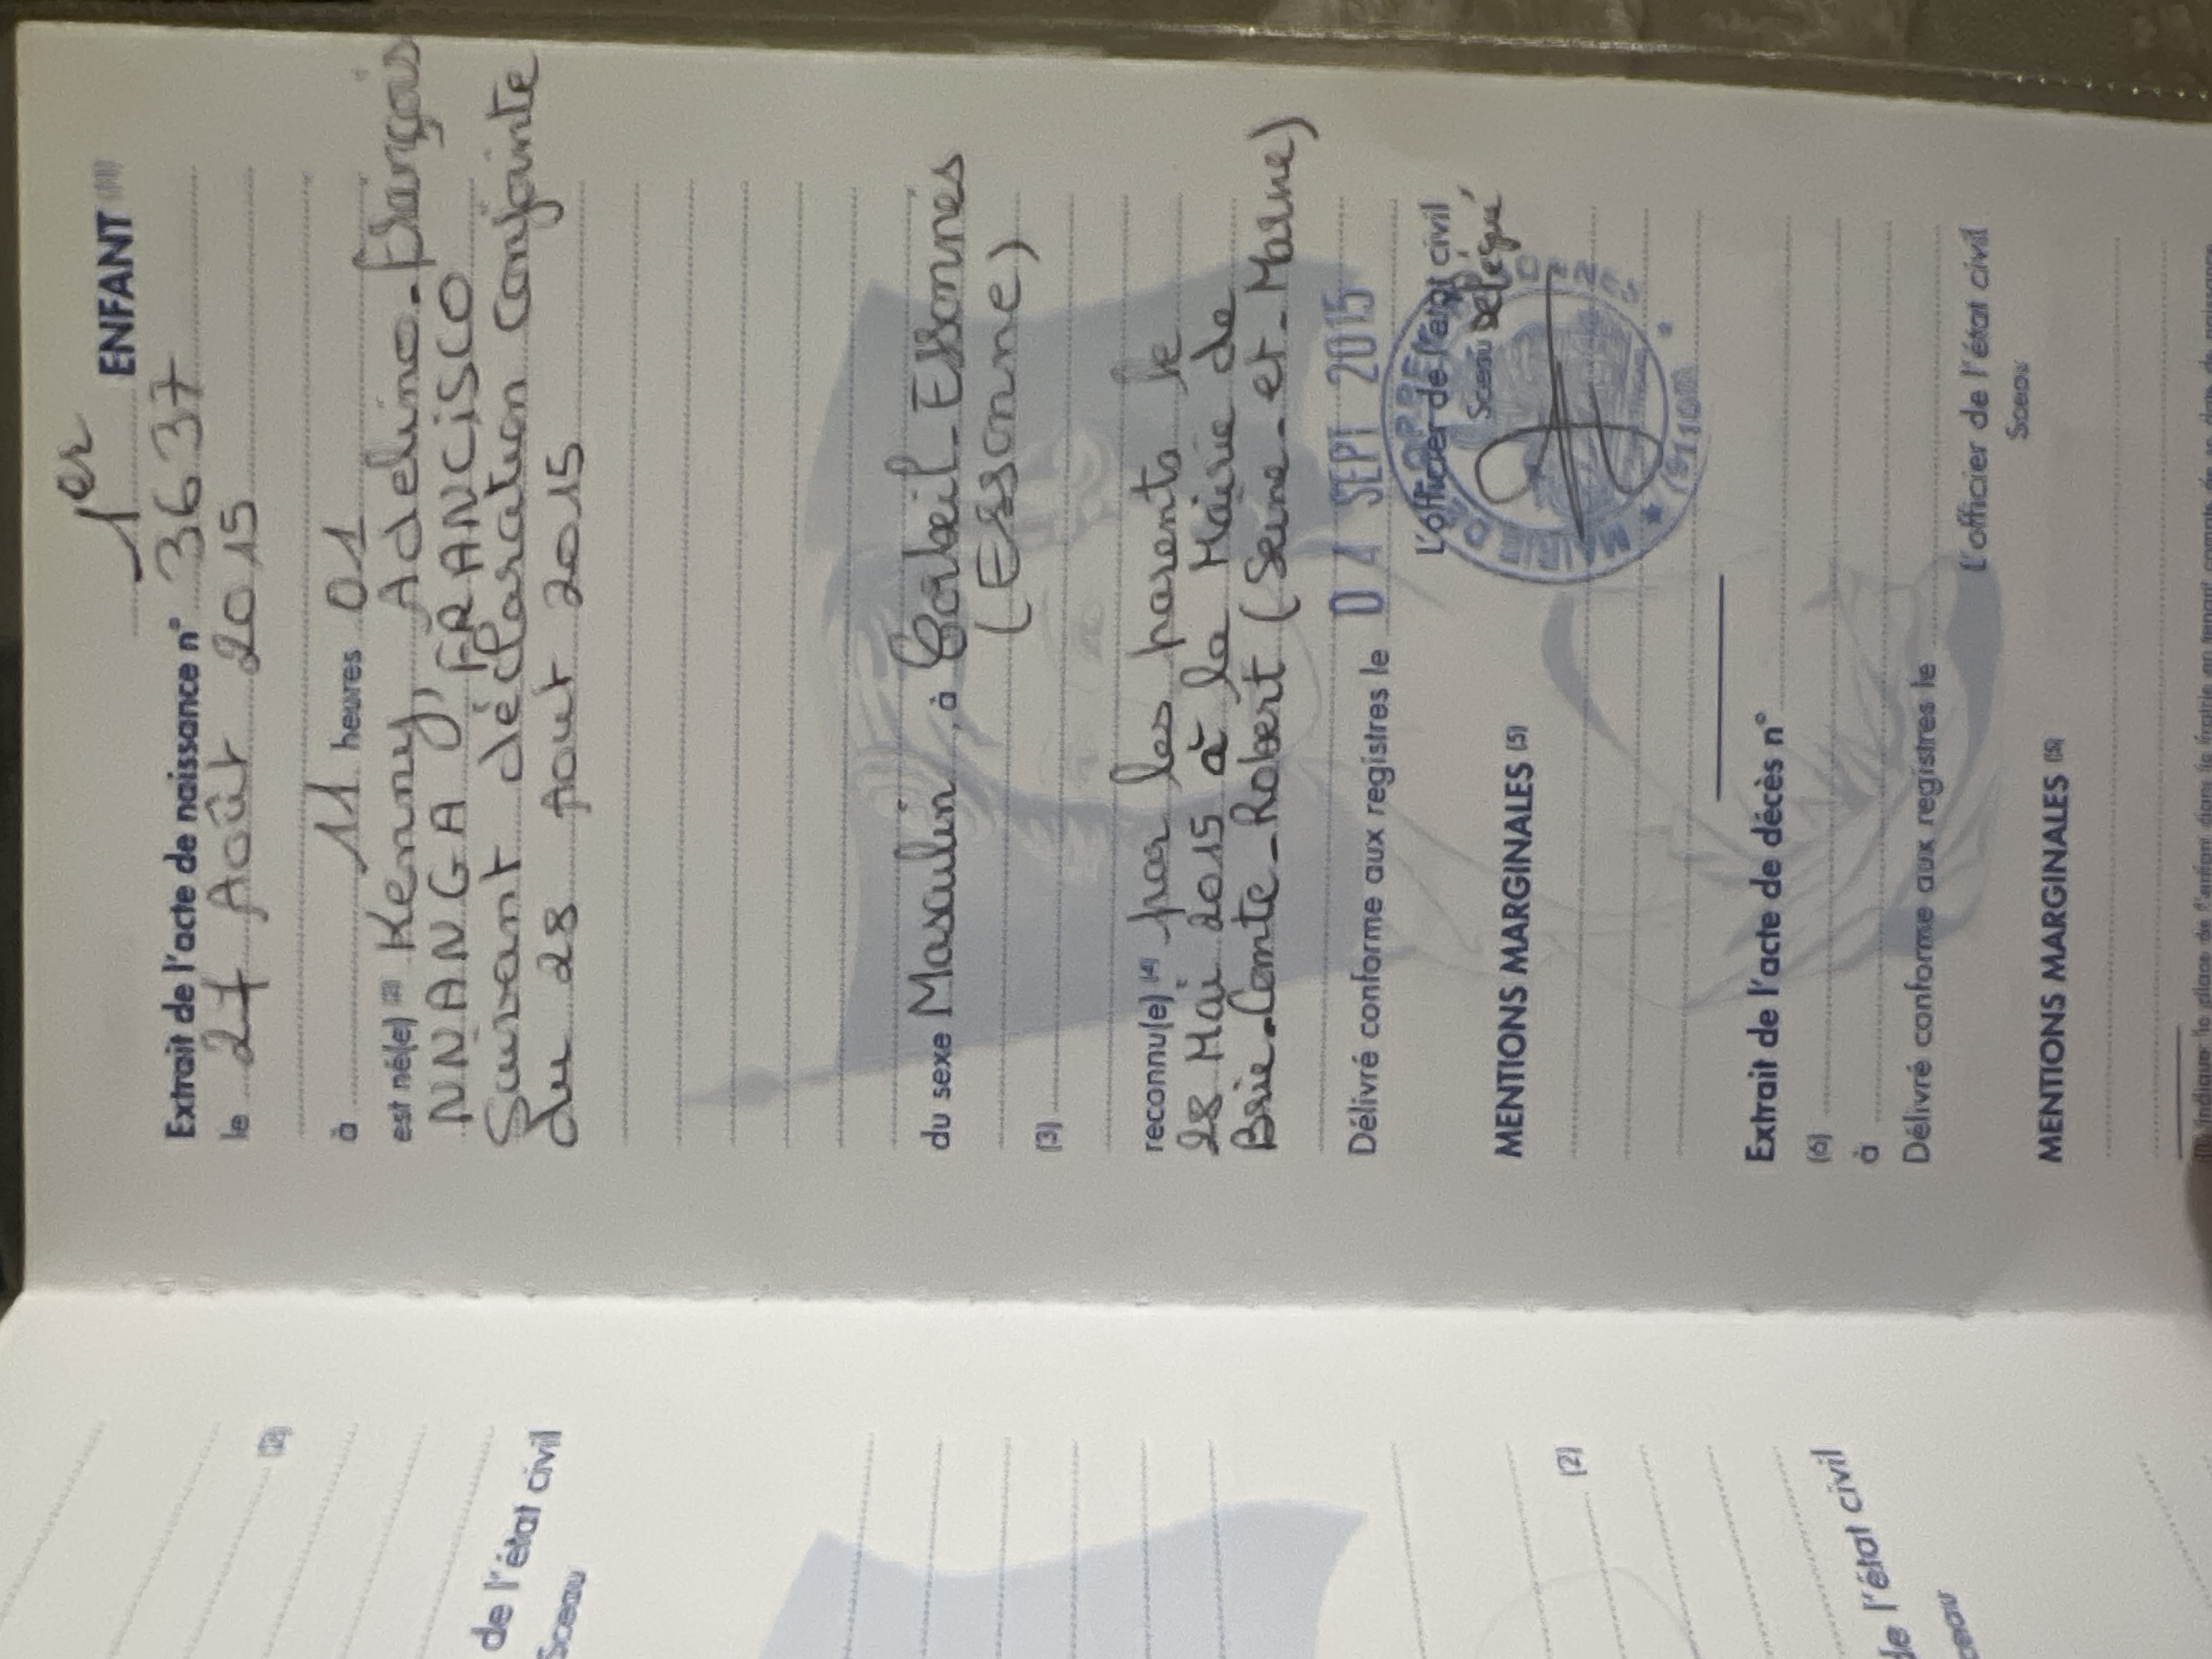 1er ENFANT (1)
Extrait de l'acte de naissance n° 3637
le 27 Août 2015
à 11 heures 01
est né(e) (2) Kenny, Adelino - François
NNANGA FRANCISCO
Suivant déclaration conjointe
du 28 Août 2015
du sexe Masculin, à Corbeil-Essonnes
(3) (Essonne)
reconnu(e) (4) par les parents le
28 Mai 2015 à la Mairie de
Brie-Comte-Robert (Seine-et-Marne)
Délivré conforme aux registres le 04 SEPT 2015
L'officier de l'état civil
Sceau Délégué
MAIRIE DE CORBEIL
(91100)
MENTIONS MARGINALES (5)
Extrait de l'acte de décès n°
(6)
à
Délivré conforme aux registres le
L'officier de l'état civil
Sceau
MENTIONS MARGINALES (5)
(2)
de l'état civil
Sceau
(2)
de l'état civil
ceau